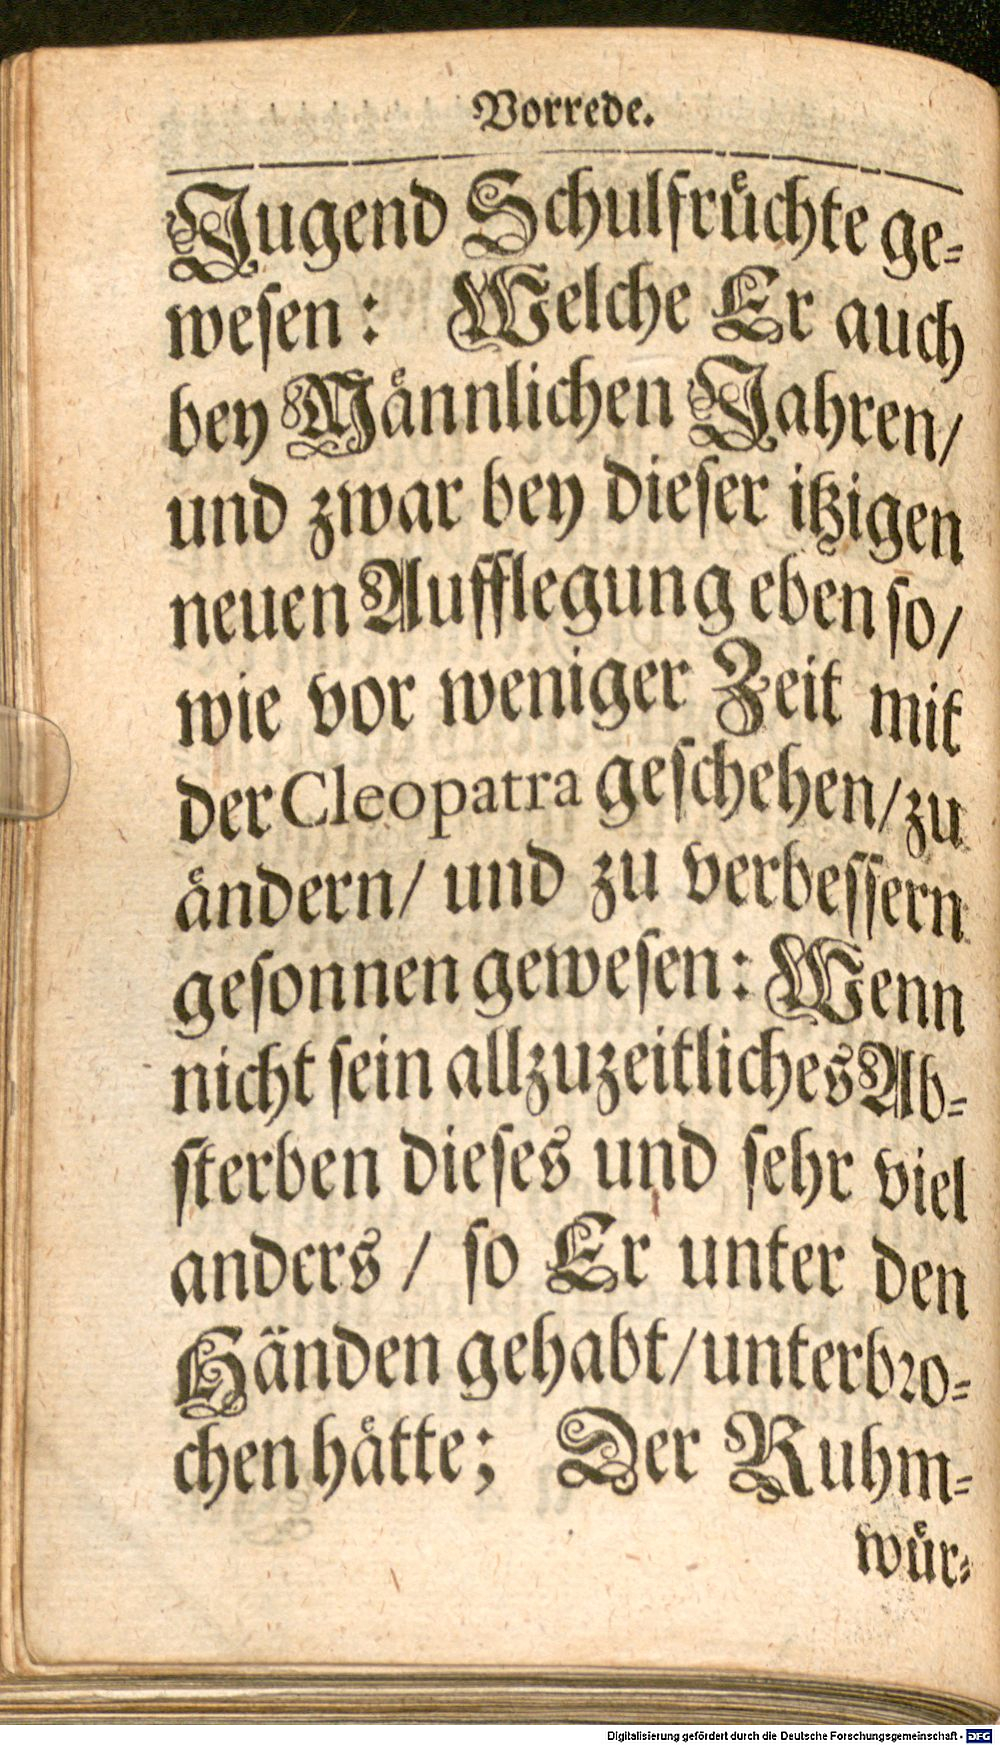 Vorrede.
Jugend Schulfruͤchte ge-
weſen: Welche Er auch
bey Maͤnnlichen Jahren/
und zwar bey dieſer itzigen
neuen Aufflegung eben ſo/
wie vor weniger Zeit mit
der Cleopatra geſchehen/zu
aͤndern/ und zu verbeſſern
geſonnen geweſen: Wenn
nicht ſein allzuzeitliches Ab-
ſterben dieſes und ſehr viel
anders / ſo Er unter den
Haͤnden gehabt/unterbro-
chen haͤtte; Der Ruhm-
wuͤr-
Digitalisierung gefördert durch die Deutsche Forschungsgemeinschaft - DFG